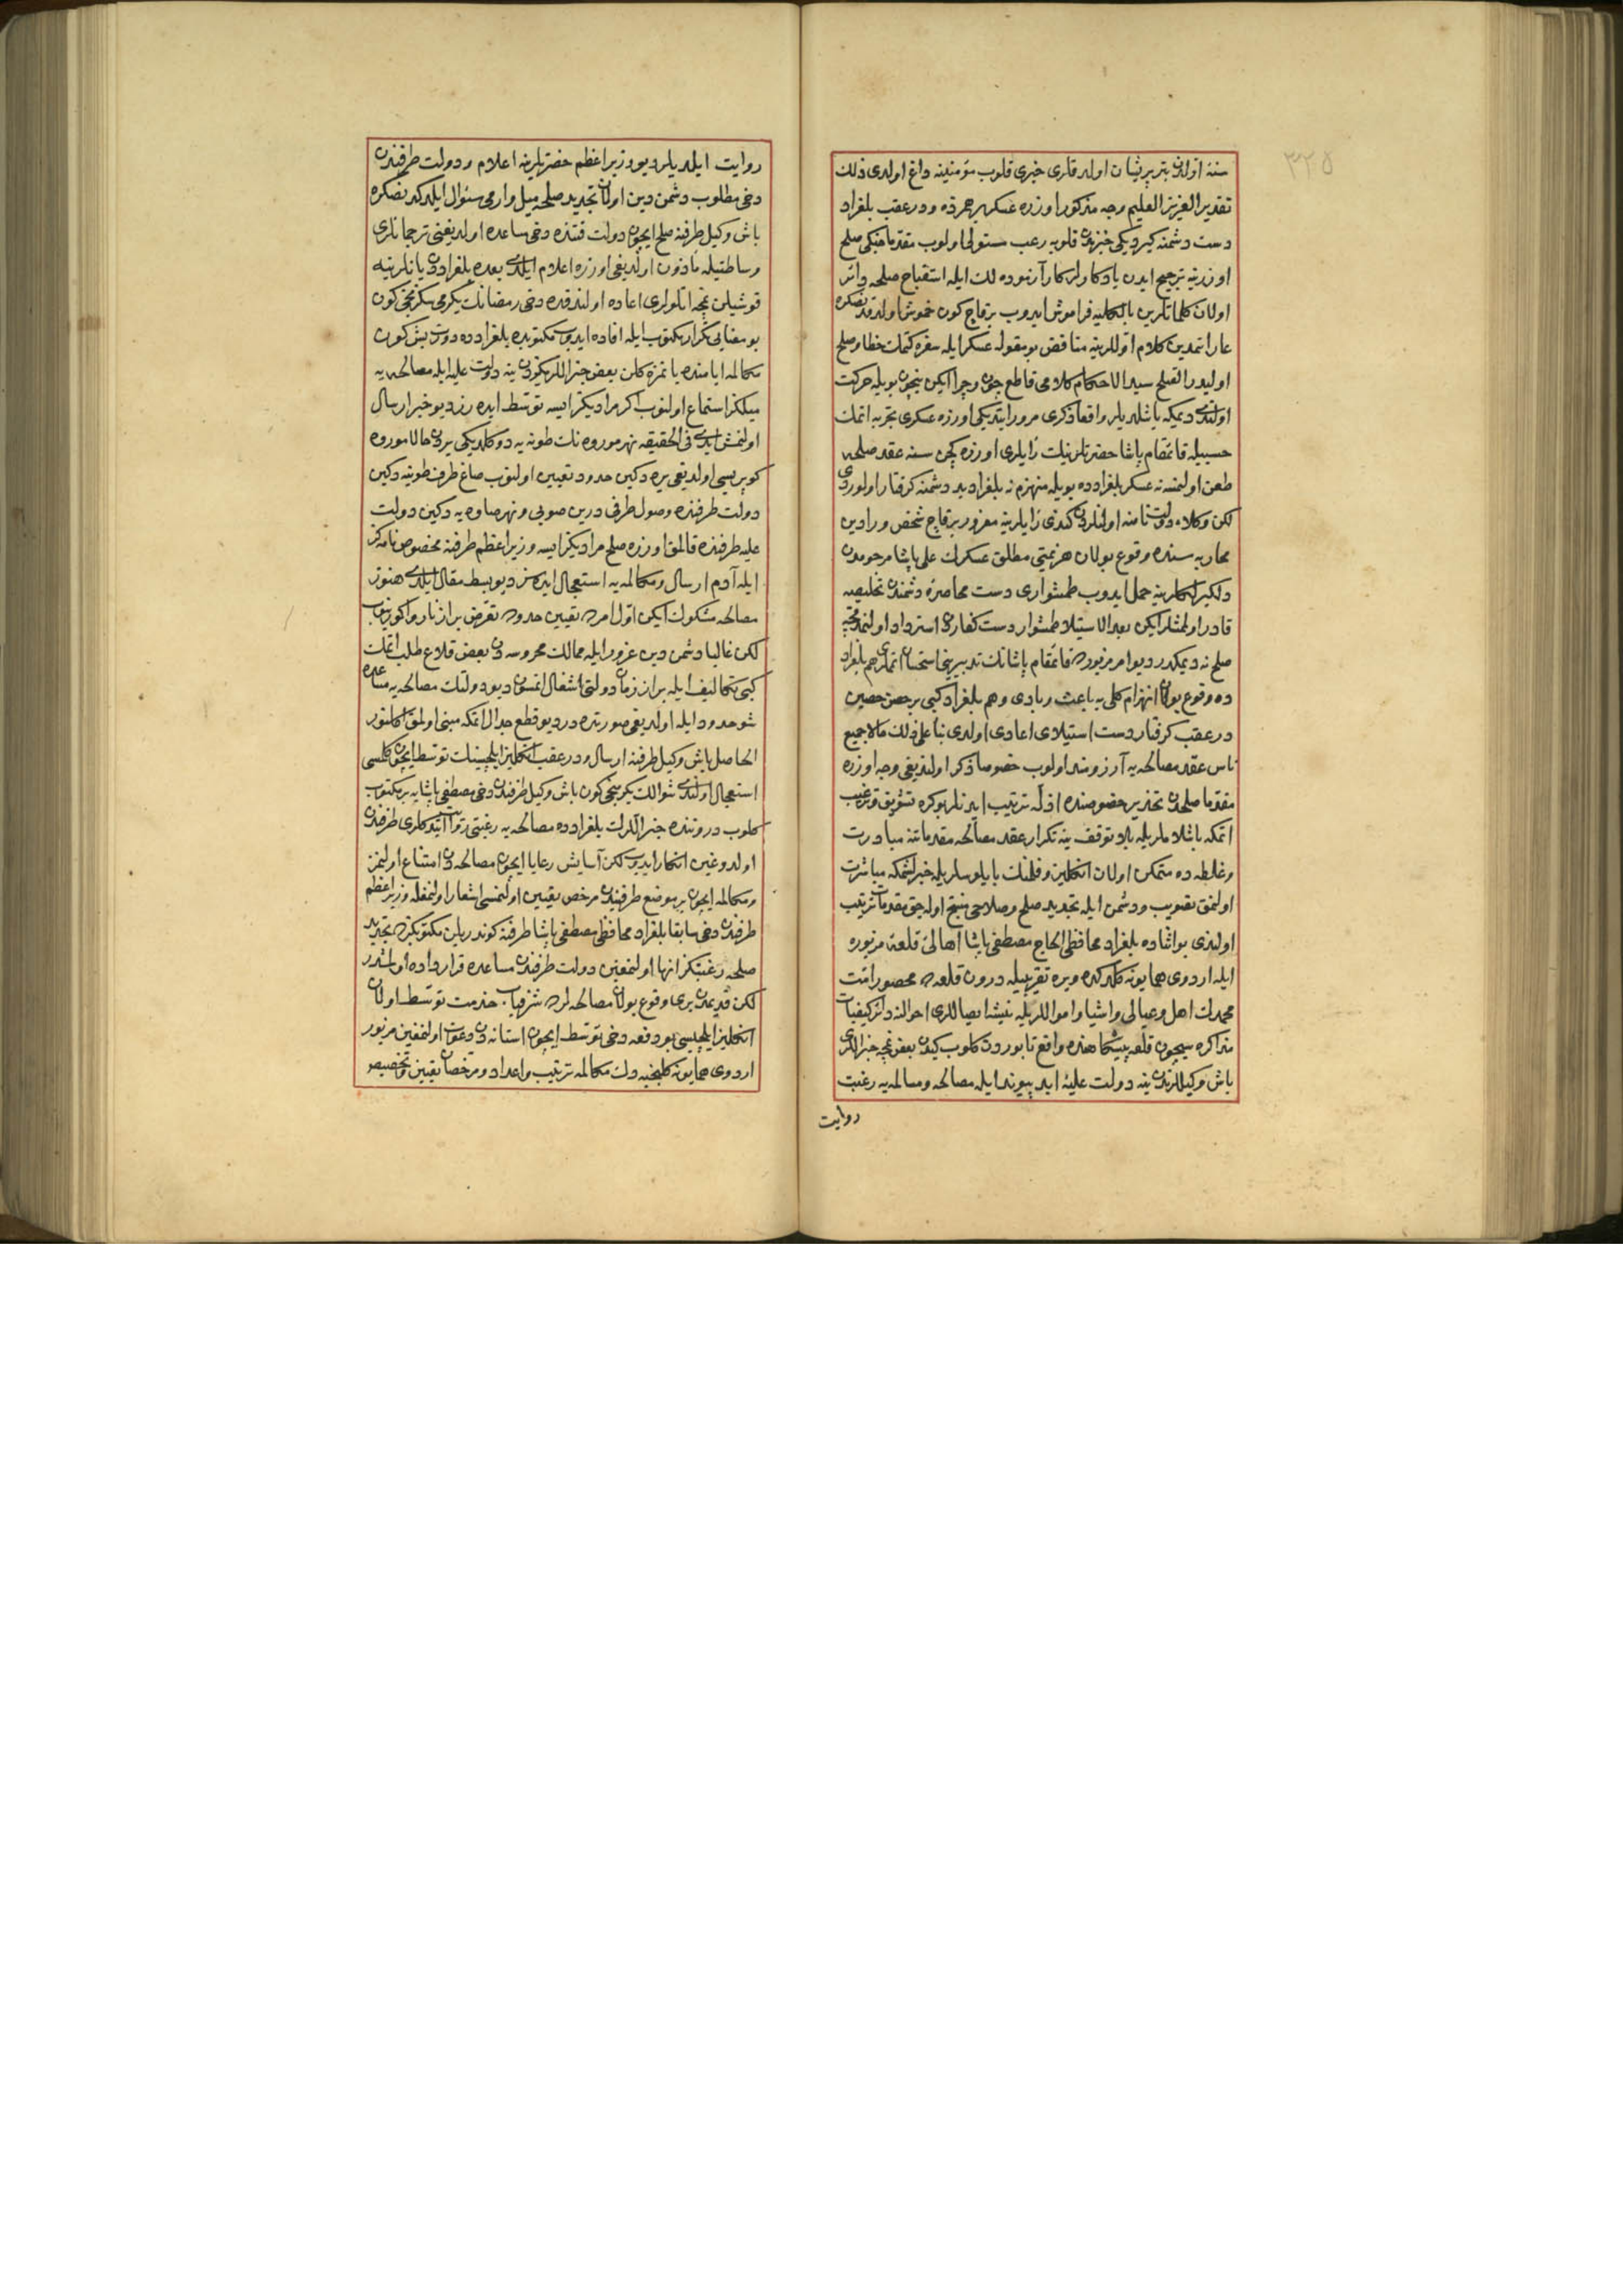 ٣٢٥
سنه اولان بتر پریشان اولدقلری خبری قلوب مؤمنینه داغ اولدی ذلك
تقدیر العزیز العلیم وجه مذکور اوزره عسکر بر حمرقه ودرعقب بلغراد
دست دشمنه کیردیکی خبرندن قلوبه رعب مستولی اولوب مقدما جنکی صلح
اوزرینه ترجیح ایدن یادکارلر کار آزموده لك ایله استقباح صلحه دائر
اولان کلماتلرین بالکلیه فراموش ایدوب برقاچ کون خموش اولدقدنصکره
عار اتمدین کلام اوللرینه مناقض بو مقوله عسکر ایله سفره کتمك خطا وصلح
اولیدر الصلح سید الاحکام کلامی قاطع چون وچرا ایکن نیچون بویله حرکت
اولندی دیمکه باشلدیلر واقعا ذکری مرور ایتدیکی اوزره عسکری تجربه اتمك
حسبیله قائمقام پاشا حضرتلرینك رایلری اوزره کچن سنه عقد صلحه
طعن اولنمسه نه عسکر بلغرادده بویله منهزم نه بلغراد ید دشمنه کرفتار اولوردی
لکن وکلاء دولت نامنه اولنلردن کندی رایلرینه مغرور برقاچ شخص ورادین
محاربه سنده وقوع بولان هزیمتی مطلق عسکرك علی پاشا مرحومدن
دلکیر لکلرینه حمل ایدوب طمشواری دست محاصره دشمندن تخلیصه
قادر اولمشلر ایکن بعد الاستیلا طمشوار دست کفاردن استرداد اولنمدقجه
صلح نه دیمکدر دیو امر مزبورده قائمقام پاشانك تدبیرینی استحسان اتمدیلر هم بلغراد
ده وقوع بولان انهزام کلی یه باعث وبادی وهم بلغراد کبی بر حصن حصین
درعقب کرفتار دست استیلای اعادی اولدی بناء علی ذلك مالا جمیع
ناس عقد مصالحه یه آرزومند اولوب خصوصا ذکر اولندیغی وجه اوزره
مقدما صلحدن تحذیر خصوصنده ادله ترتیب ایدنلر بو کره تشویق وترغیب
اتمکه باشلاملریله بلا توقف ینه تکرار عقد مصالحه مقدماتنه مبادرت
وغلطه ده متمکن اولان انکلیز وفلمنك بایلوسلریله خبرلشمکه مباشرت
اولنمق تصویب ودشمن ایله تجدید صلح وصلاحی منتج اوله جق مقدمات ترتیب
اولندی بو اثناده بلغراد محافظی الحاج مصطفی پاشا اهالئ قلعه مزبوره
ایله اردوی همایونه کلدکده ویره تقریبیله درون قلعه ده محصور امت
محمدك اهل وعیالی واشیا واموالریله نیشه ایصاللری احوالنه دائر کیفیات
مذاکره سیچون قلعه پیشکاهنده واقع تابوردن کلوب کیدن بعض نمچه جنراللری
باش وکیللرندن ینه دولت علیه ابد پیوند ایله مصالحه ومسالمه یه رغبت
روایت
روایت ایلدیلر دیو وزیر اعظم حضرتلرینه اعلام ودولت طرفندن
دخی مطلوب دشمن دین اولان تجدید صلحه میل وارمی سئوال ایلدکدنصکره
باش وکیل طرفنه صلح ایچون دولت قتنده دخی مساعده اولدیغنی ترجمانلری
وساطتیله مأذون اولدیغی اوزره اعلام ایلدی بعده بلغراددن یانلرینه
قوشیلن نمچه اتلولری اعاده اولندقده دخی رمضانك یکرمی سکزنجی کون
بو معنایی تکرار مکتوب ایله افاده ایدوب مکتوبده بلغرادده دورت بش کون
مکالمه ایامنده یانمزه کلن بعض جنراللریکزدن ینه دولت علیه ایله مصالحه یه
میلکز استماع اولنوب اکر مرادیکز ایسه توسط ایده رز دیو خبر ارسال
اولنمش ایدی فی الحقیقه نهر موروه نك طونه یه دوکلدیکی یردن حالا موروه
کوپریسی اولدیغی یره دکین حدود تعیین اولنوب صاغ طرف طونیه دکین
دولت طرفنده وصول طرفی درین صویی ونهر صاوه یه دکین دولت
علیه طرفنده قالمق اوزره صلح مرادیکز ایسه وزیر اعظم طرفنه مخصوص نامه کز
ایله آدم ارسال ومکالمه یه استعجال ایده سز دیو بسط مقال ایلدی هنوز
مصالحه مشکوك ایکن اول امرده تعیین حدوده تعرض براز ناروا کورینوب
لکن غالبا دشمن دین غرور ایله ممالك محروسه دن بعض قلاع طلب اتمك
کبی تکالیف ایله براز زمان دولتی اشغال اتمسون دیو دولتك مصالحه یه مساعده
شو حدود ایله اولدیغی صورتده در دیو قطع جدال اتمکه مبنی اولمق اکلنور
الحاصل باش وکیل طرفنه ارسال ودرعقب انکلیز ایلچیسنك توسط ایچون کلمسی
استعجال اولندی شوالك یکرمنجی کون باش وکیل طرفندن دخی مصطفی پاشایه بر مکتوب
کلوب دروننده جنراللرك بلغرادده مصالحه یه رغبتی روایت ایتدکلری طرفندن
اولدوغین انکار ایدوب لکن آسایش رعایا ایچون مصالحه دن امتناع اولنمز
ومکالمه ایچون بر موضع طرفیندن مرخص تعیین اولنمسی اشعار اولنمغله وزیر اعظم
طرفندن دخی سابقا بلغراد محافظی مصطفی پاشا طرفنه کوندریلن مکتوبکزده تجدید
صلحه رغبتکز انها اولنمغین دولت طرفندن مساعده قرارداده اولمشدر
لکن قدیمدن بری وقوع بولان مصالحه لرده شرفیاب خدمت توسط اولان
انکلیز ایلچیسی بو دفعه دخی توسط ایچون استانه دن دعوت اولنمغین مزبور
اردوی همایونه کلنجیه دك مکالمه ترتیب واعداد ومرخصان تعیین وتخصیص